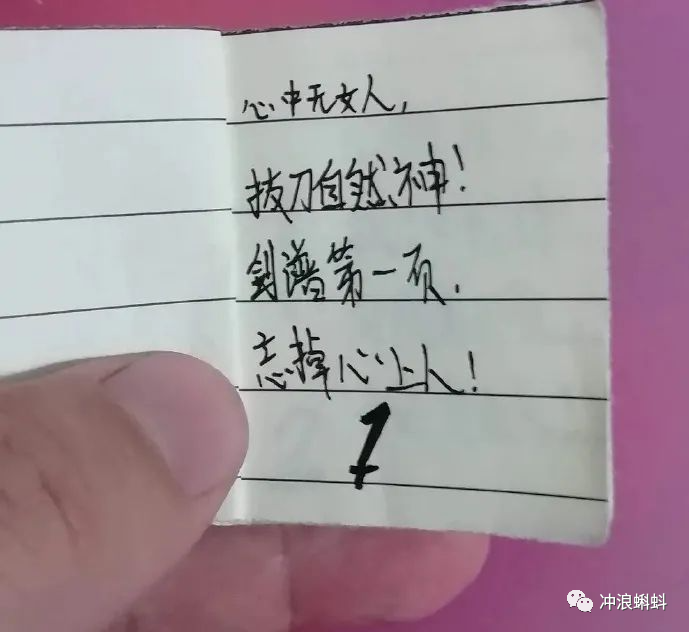 心中无女人,
拔刀自然神!
剑谱第一页.
忘掉心上人!
1
冲浪蝌蚪